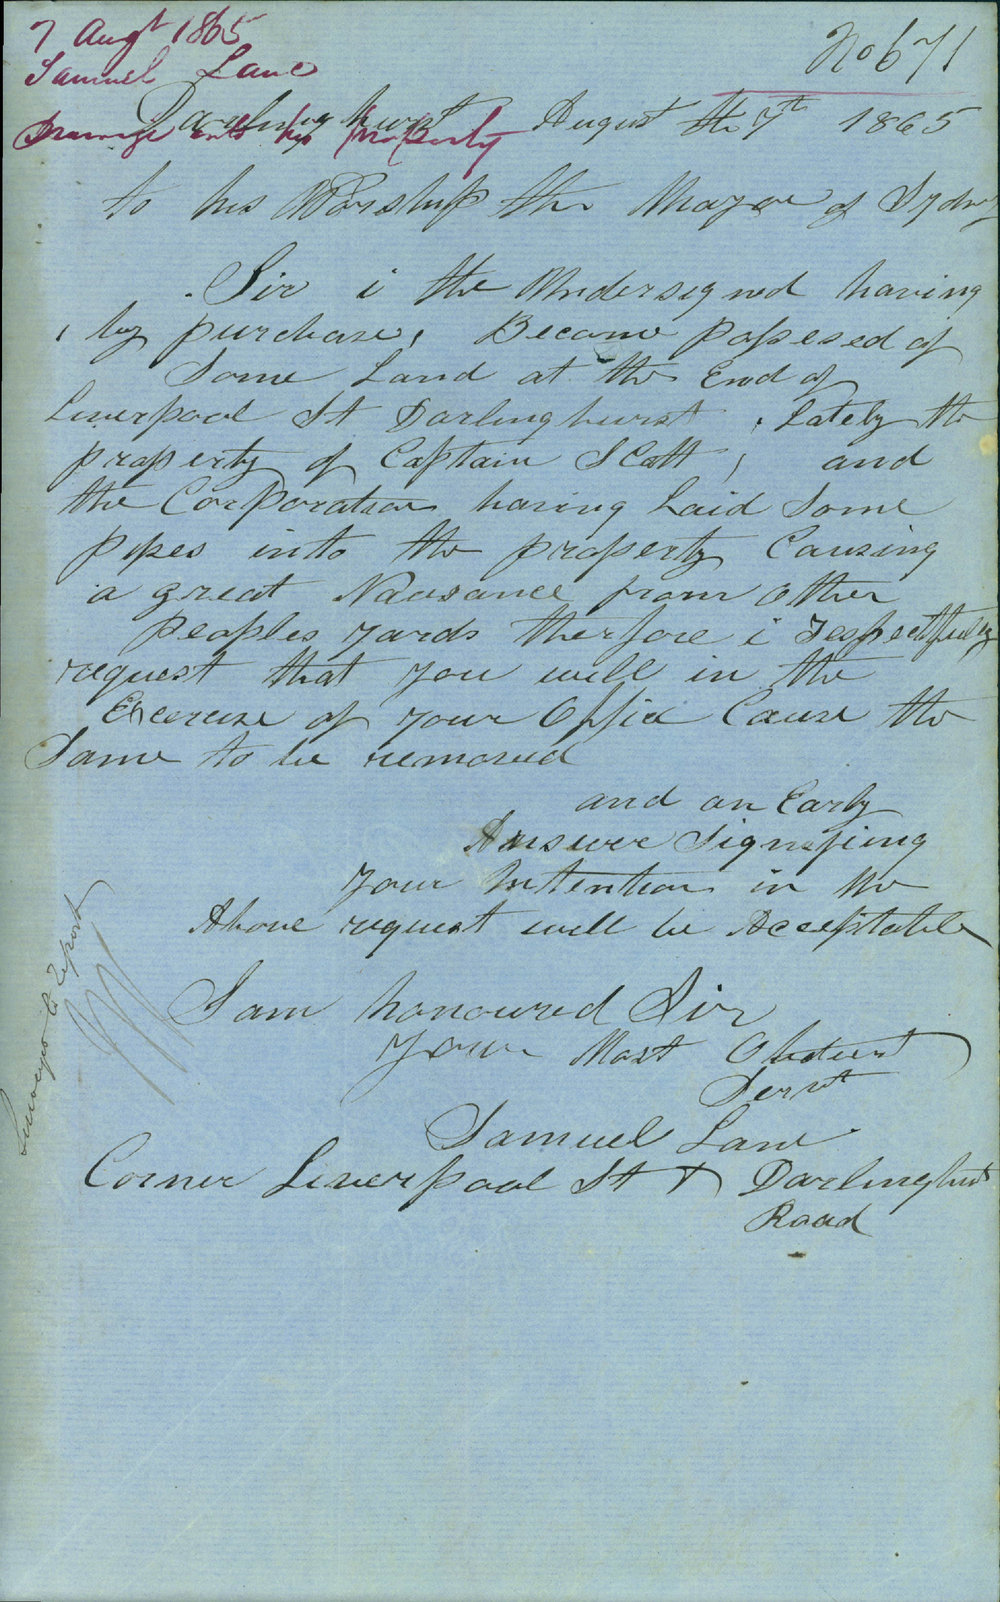 7 Augt 1865
Samuel Lane
Drainage into his property
No 671
Darlinghurst August the 7th 1865
to his Worship the Mayor of Sydney
Sir i the Undersigned having
by purchase, Became possesed of
Some Land at the End of
Liverpool St Darlinghurst, lately the
property of Captain Scott, and
the Corporation having Laid Some
pipes into the property Causing
a great Nausance from Other
peoples yards therfore i respectfully
request that you will in the
Excercise of your Office Cause the
Same to be removed
and an Early
Answer Signifiing
Your Intention in the
Above request will be Acceptable
I am honoured Sir
Your Most Obdient
Servt
Samuel Lane
Corner Liverpool St & Darlinghurst
Road
Surveyor to Report